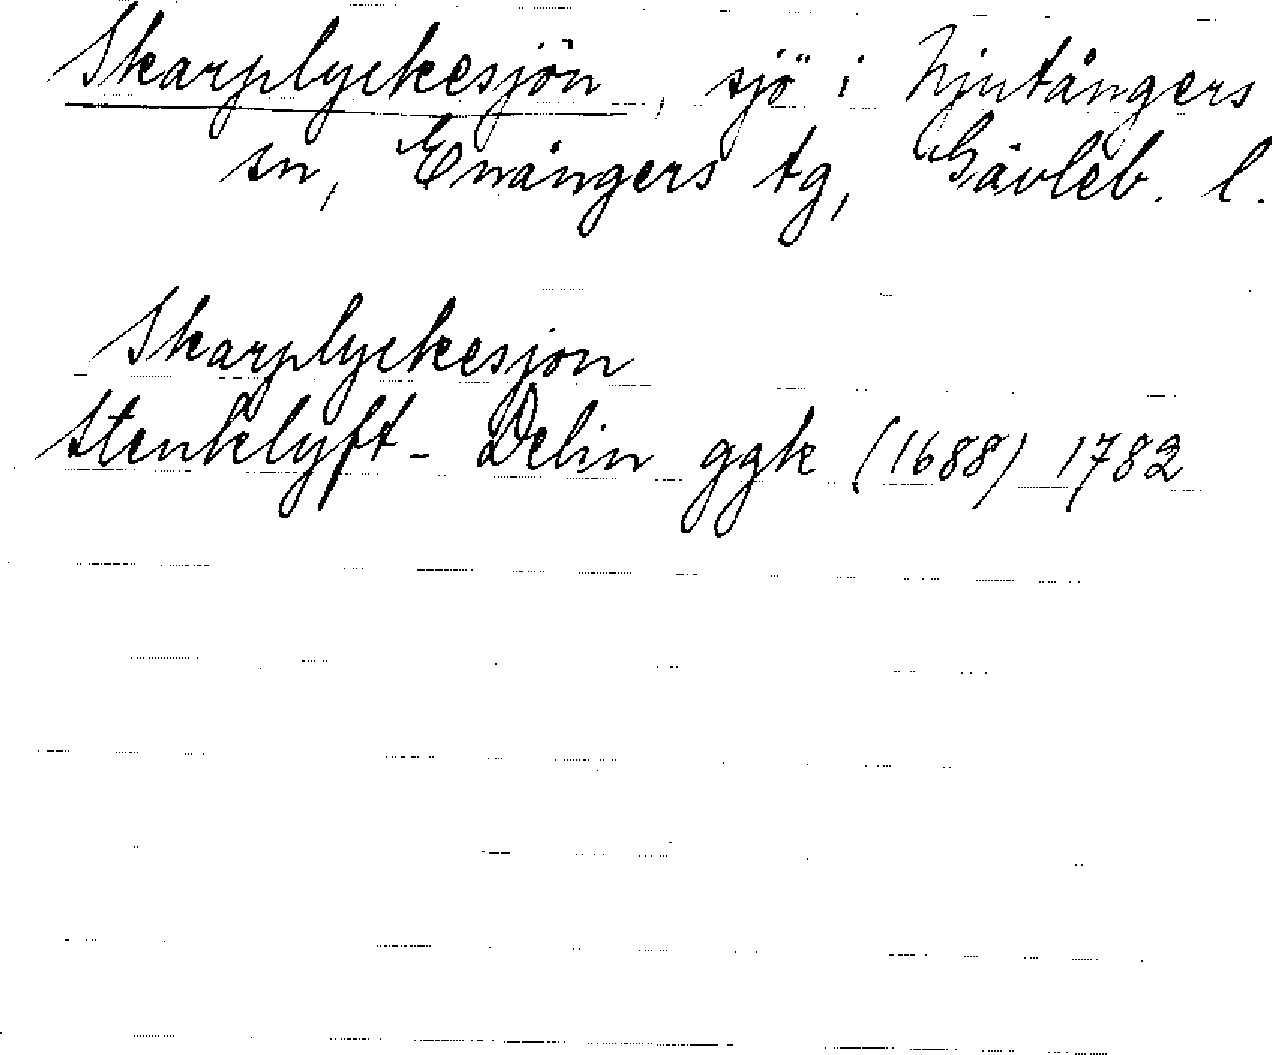 Skarplyckesjön, sjö i Njutångers
sn, Enångers tg, Gävleb. l.
Skarplyckesjon
Stenklyft - Delin ggk (1688) 1782